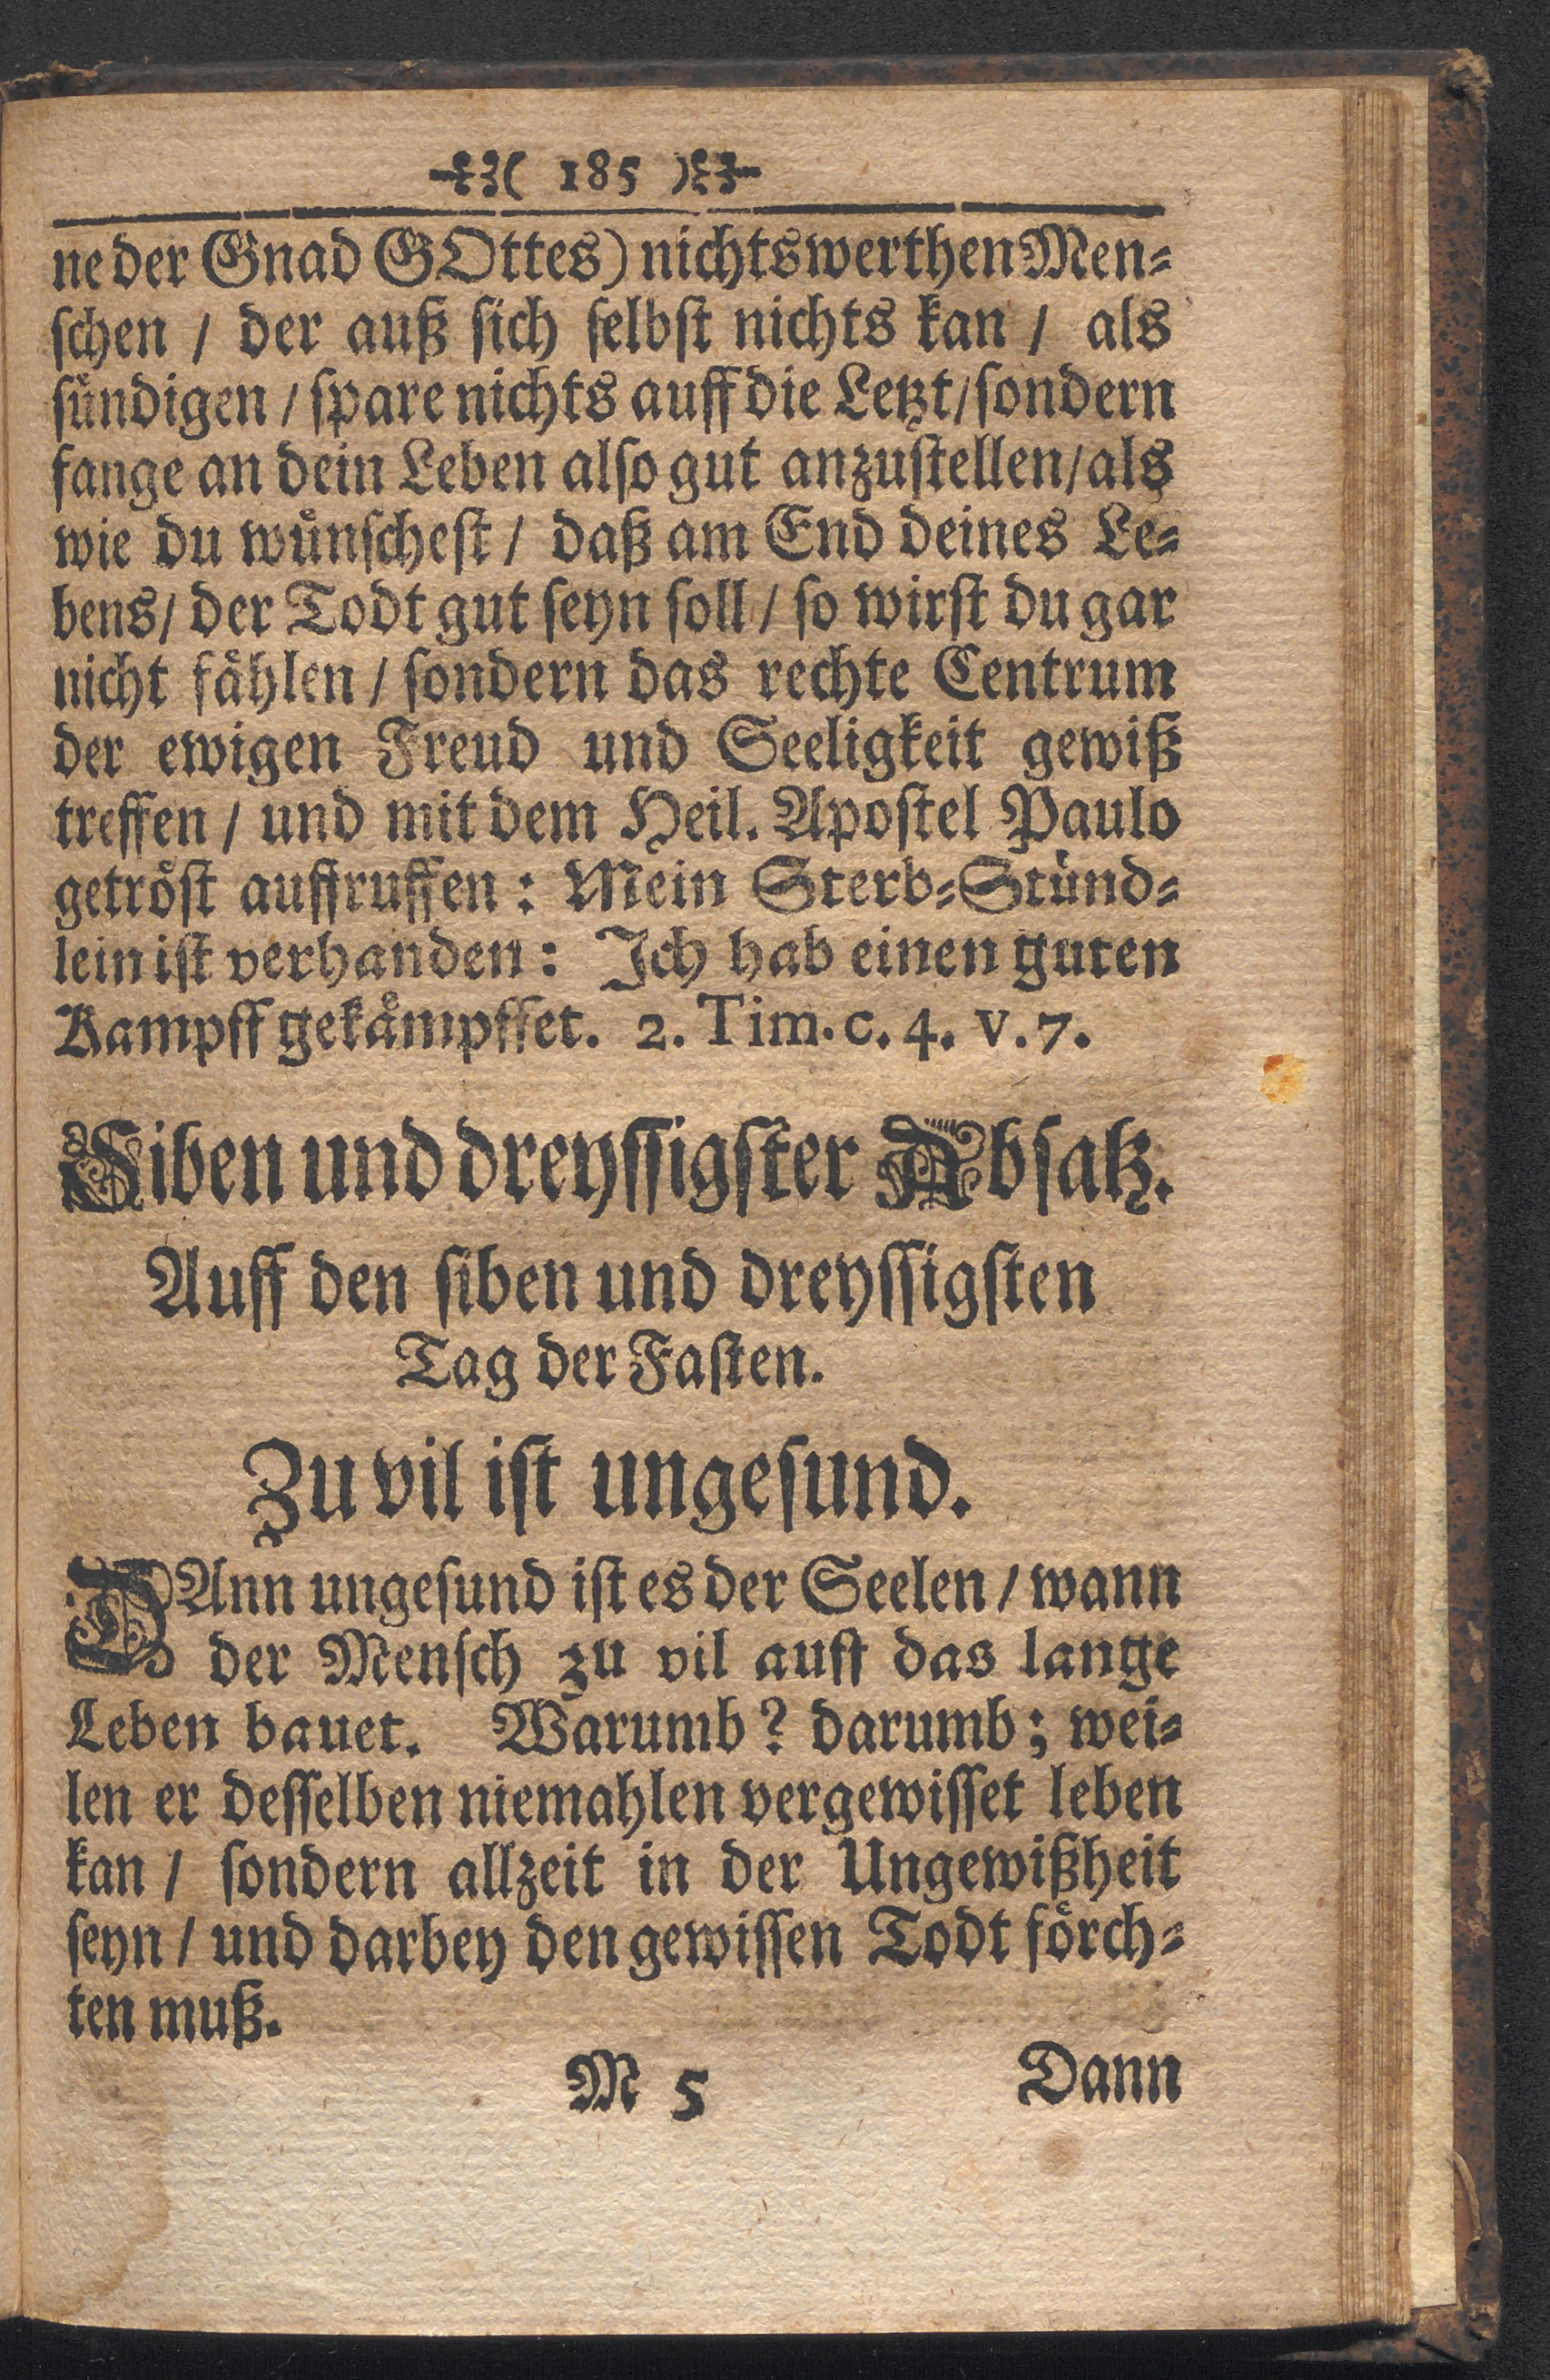 ( 185 )
ne der Gnad GOttes) nichtswerthen Men⸗
ſchen / der auß ſich ſelbſt nichts kan / als
ſuͤndigen / ſpare nichts auff die Letzt / ſondern
fange an dein Leben alſo gut anzuſtellen / als
wie du wuͤnſcheſt / daß am End deines Le⸗
bens / der Todt gut ſeyn ſoll / ſo wirſt du gar
nicht faͤhlen / ſondern das rechte Centrum
der ewigen Freud und Seeligkeit gewiß
treffen / und mit dem Heil. Apoſtel Paulo
getroͤſt auffruffen : Mein Sterb⸗Stuͤnd⸗
lein iſt verhanden : Ich hab einen guten
Kampff gekaͤmpffet. 2. Tim. c. 4. v. 7.
Siben und dreyſſigſter Abſatz.
Auff den ſiben und dreyſſigſten
Tag der Faſten.
Zu vil iſt ungeſund.
DAnn ungeſund iſt es der Seelen / wann
der Menſch zu vil auff das lange
Leben bauet. Warumb ? darumb ; wei⸗
len er deſſelben niemahlen vergewiſſet leben
kan / ſondern allzeit in der Ungewißheit
ſeyn / und darbey den gewiſſen Todt foͤrch⸗
ten muß.
M 5 Dann